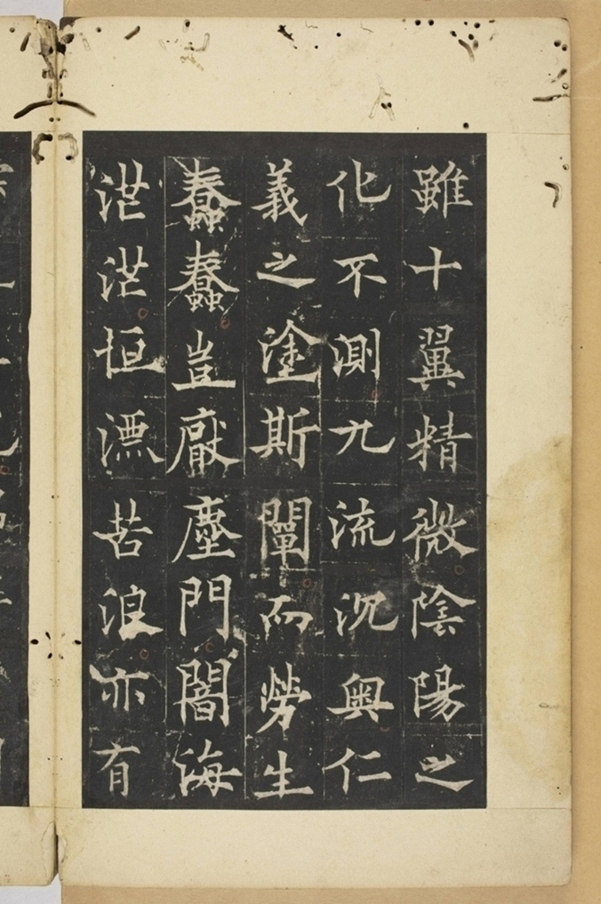 雖十翼精微陰陽之
化不測九流沉奧仁
義之塗斯闡而勞生
蠢蠢豈厭塵門闇海
茫茫恒漂苦浪亦有